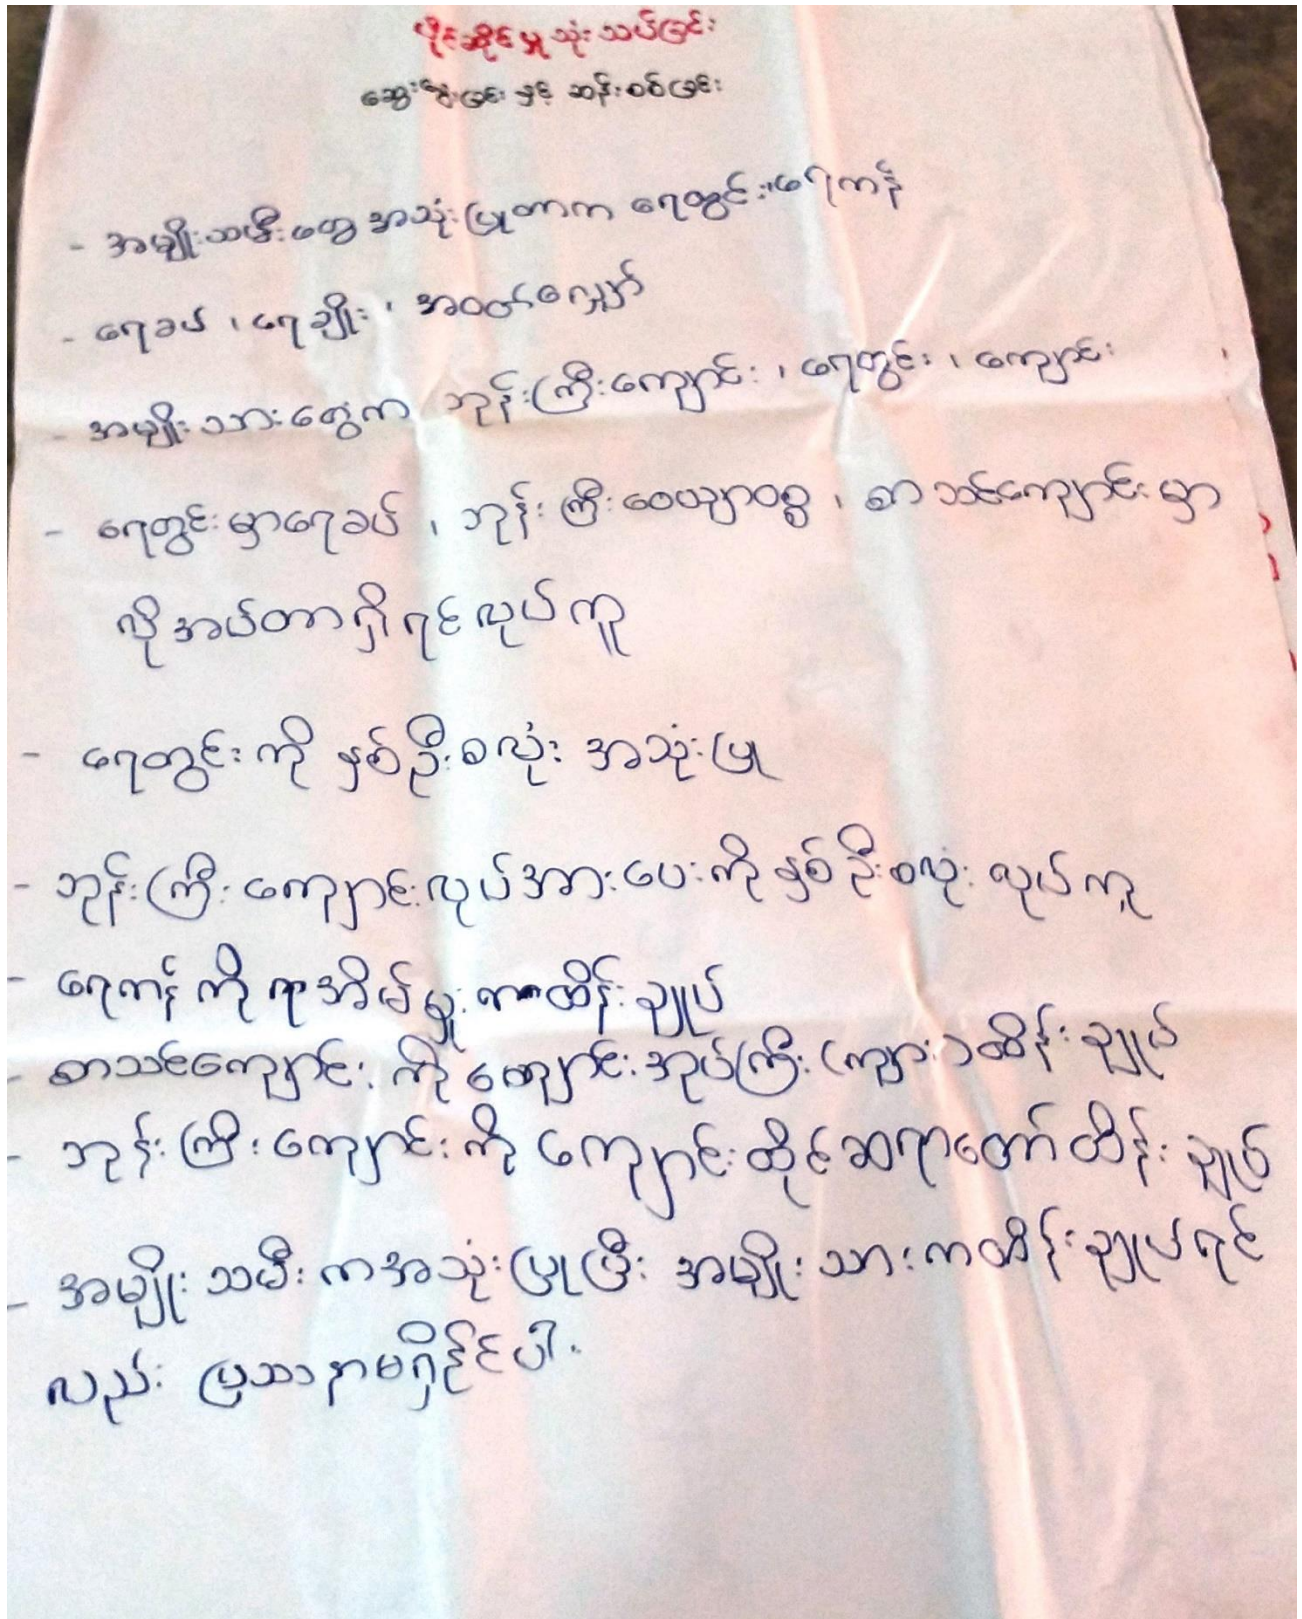 ပိုင်ဆိုင်မှု သုံးသပ်ခြင်း
ဆွေးနွေးခြင်း နှင့် ဆန်းစစ်ခြင်း
- အမျိုးသမီးတွေ အသုံးပြုတာက ရေတွင်း၊ ရေကန်
- ရေခပ် ၊ ရေချိုး ၊ အဝတ်လျှော်
- အမျိုးသားတွေက ဘုန်းကြီးကျောင်း ၊ ရေတွင်း ၊ ကျောင်း
- ရေတွင်းမှာရေခပ် ၊ ဘုန်းကြီးဝေယျာဝစ္စ ၊ စာသင်ကျောင်းမှာ
လိုအပ်တာရှိရင်လုပ်ကူ
- ရေတွင်းကို နှစ်ဦးစလုံး အသုံးပြု
- ဘုန်းကြီးကျောင်းလုပ်အားပေးကိုနှစ်ဦးစလုံး လုပ်ကူ
- ရေကန်ကို ရာအိမ်မှူး ထိန်းချုပ်
- စာသင်ကျောင်းကို ကျောင်းအုပ်ကြီး (ကျား) ထိန်းချုပ်
- ဘုန်းကြီးကျောင်းကို ကျောင်းထိုင်ဆရာတော် ထိန်းချုပ်
- အမျိုးသမီးကအသုံးပြုပြီး အမျိုးသားကထိန်းချုပ်ရင်
လည်း ပြဿနာမရှိနိုင်ပါ.